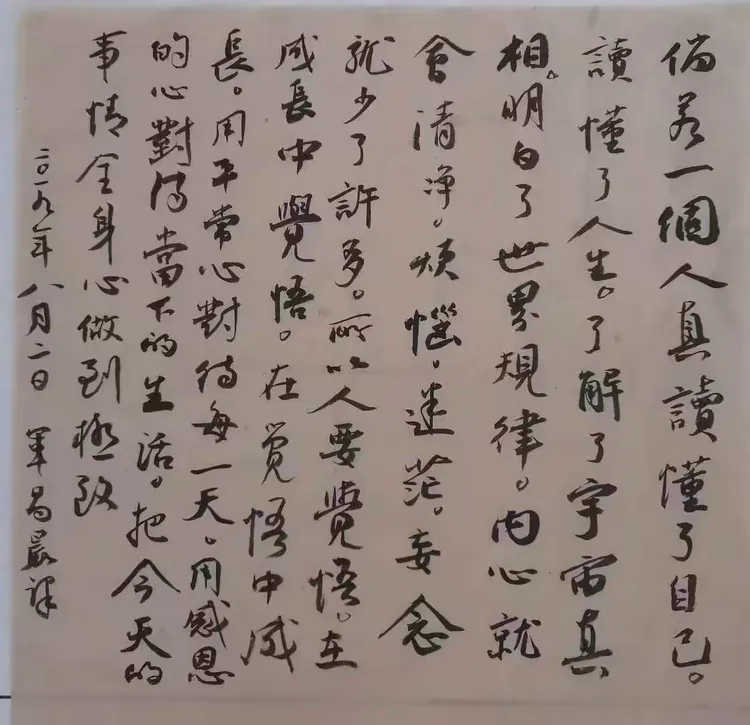 倘若一個人真讀懂了自己。
讀懂了人生。了解了宇宙真
相。明白了世界規律。内心就
會清净。烦惱。迷茫。妄念
就少了許多。所以人要覺悟。在
成長中覺悟。在觉悟中成
長。用平常心對待每一天。用感恩
的心對待當下的生活。把今天的
事情全身心做到極致
二〇一九年八月二日 軍昌晨